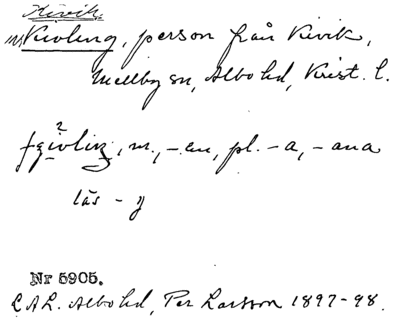 Kivik.
m, Kivling, person från Kivik,
Mellby sn, Albo hd, Krist. l.
m., -en, pl. -a, -ana
läs - y
Nr 5905.
LAL. Albo hd, Per Larsson 1897-98.